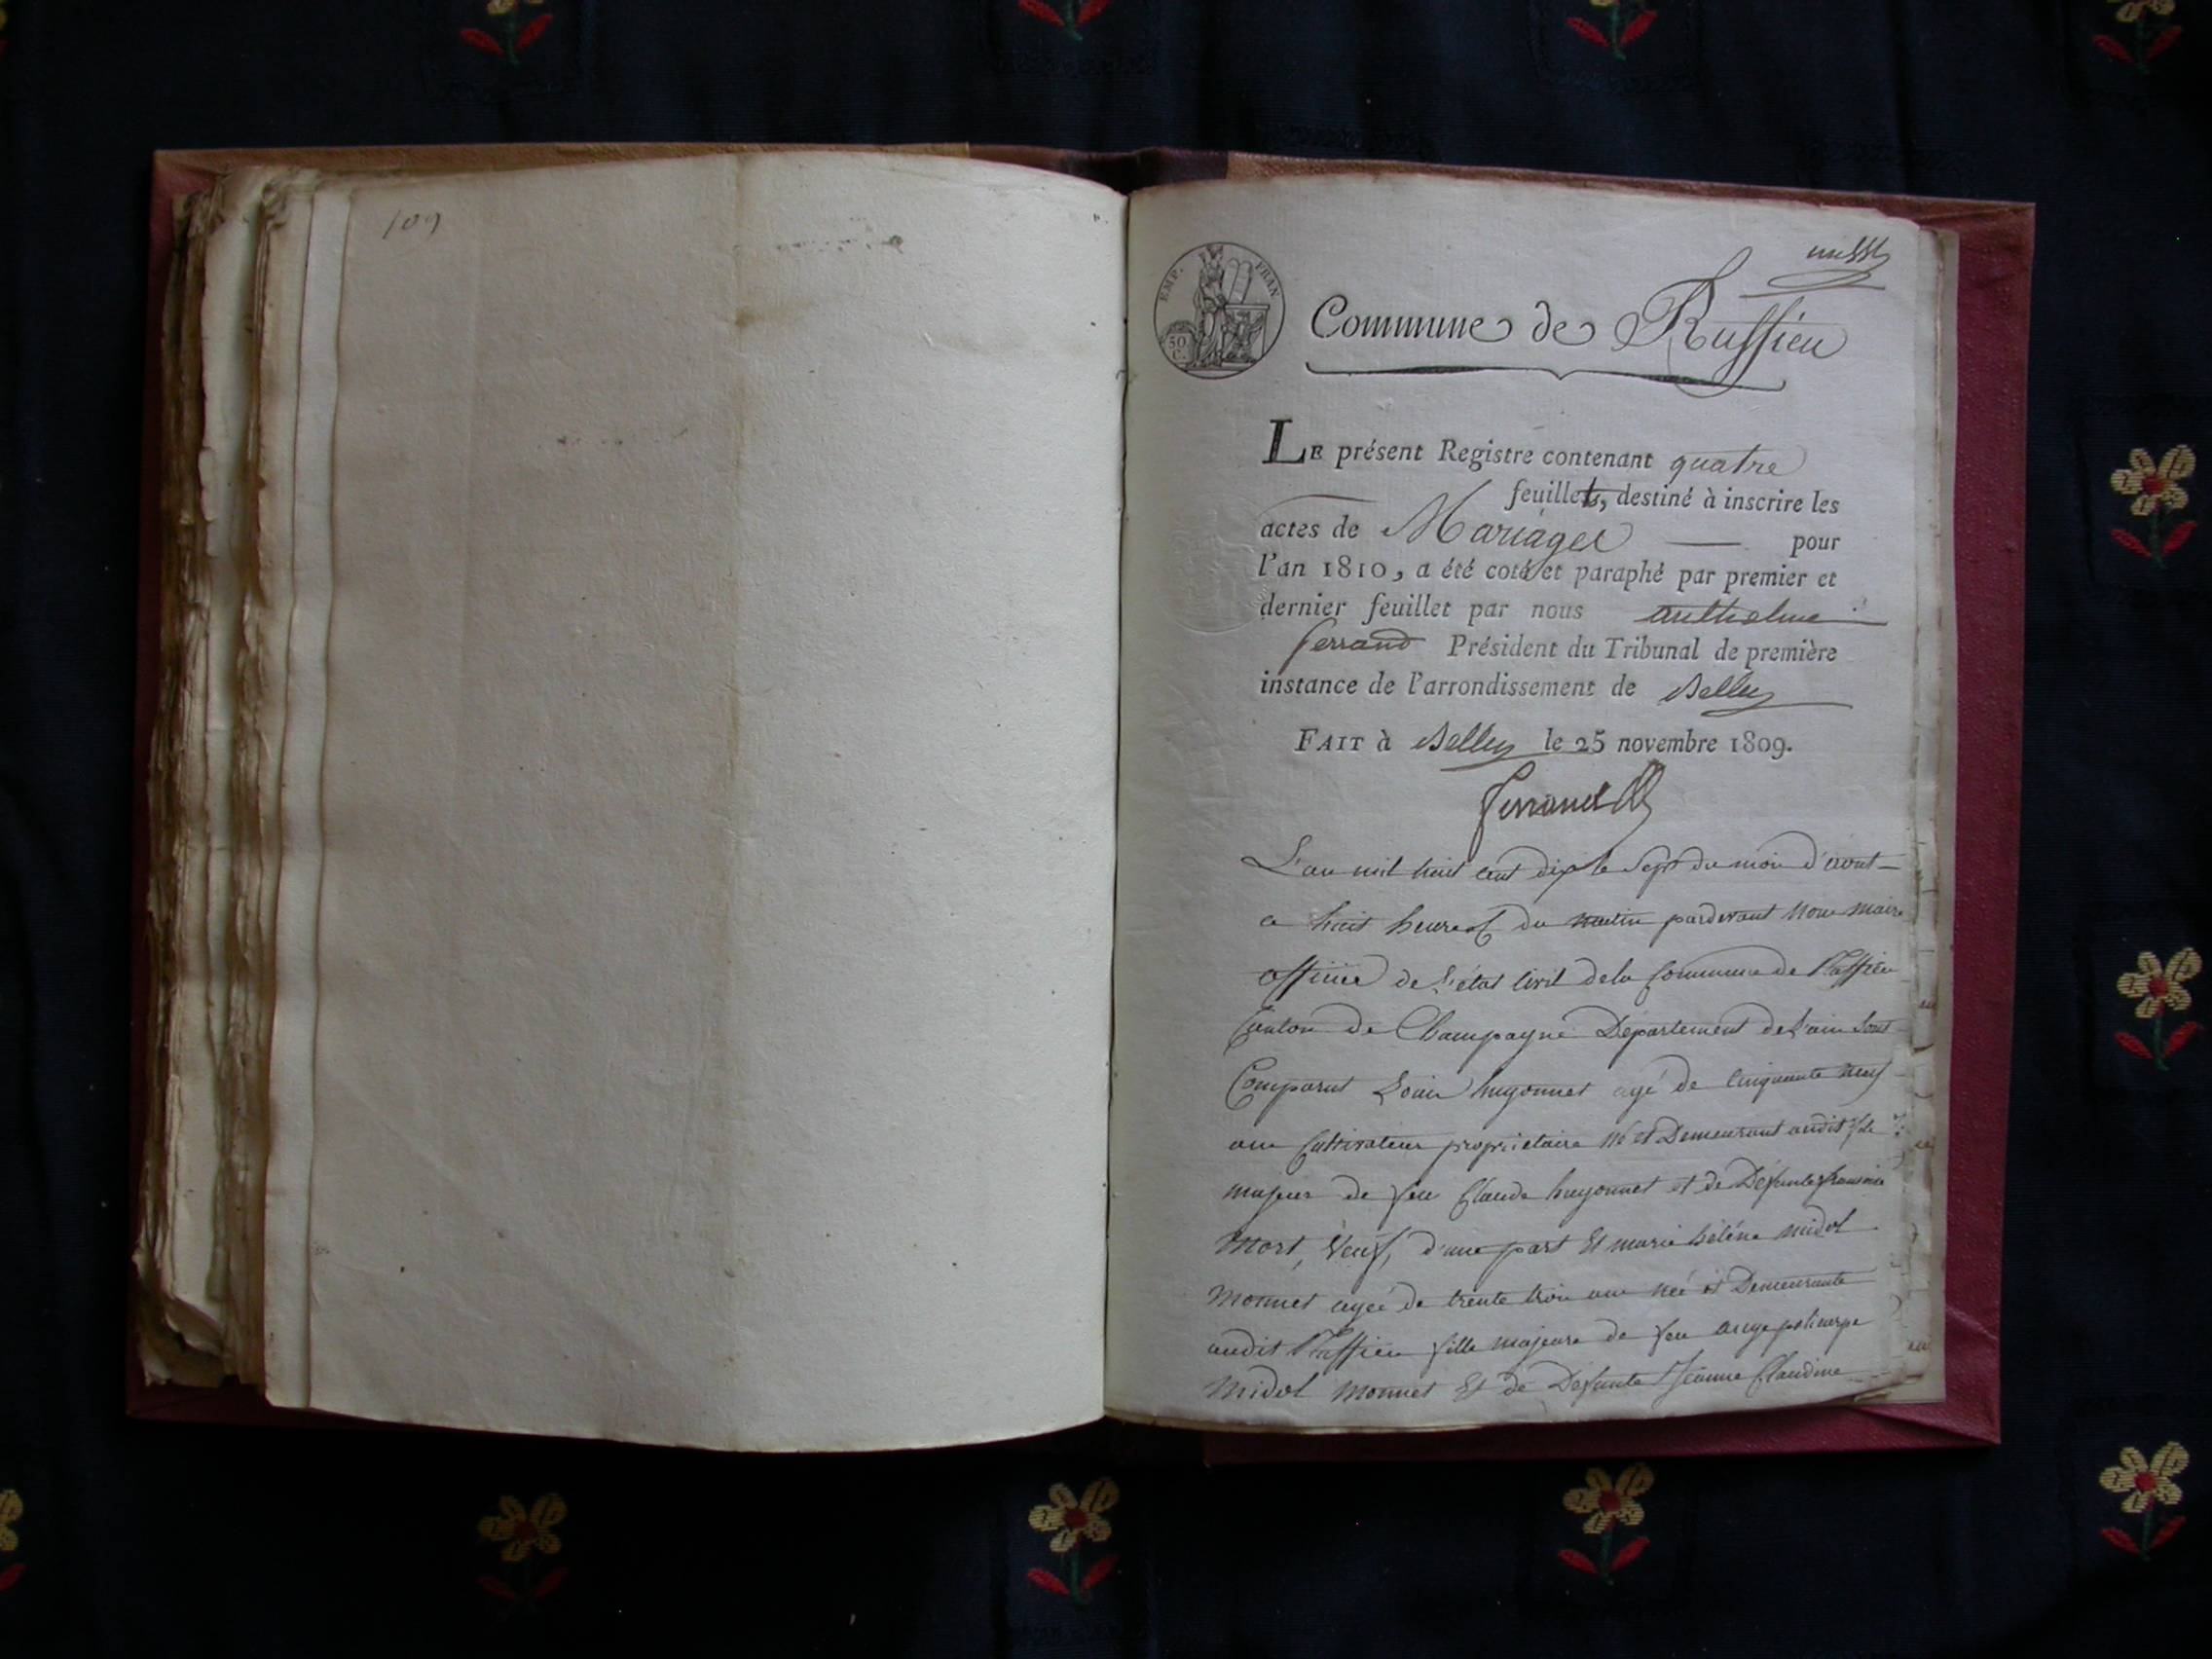 109
EMP. FRAN
50
C.
Commune de Ruffieu
LE présent Registre contenant quatre
feuillets, destiné à inscrire les
actes de Mariages pour
l'an 1810, a été coté et paraphé par premier et
dernier feuillet par nous anthelme
ferrand Président du Tribunal de première
instance de l'arrondissement de Belley
FAIT à Belley le 25 novembre 1809.
ferrand
L'an mil huit cent dix le sept du mois d'aout
a huit heures du matin pardevant nous maire
officier de l'état civil dela Commune de Ruffieu
Canton de Champagne Département del'ain sont
Comparus Louis hugonnet agé de cinquante neuf
ans Cultivateur proprietaire né et Demeurant audit
majeur de feu Claude hugonnet et de Défunte fransoise
Mort, Veuf, d'une part Et marie hélène midol
monnet agée de trente trois ans née et Demeurante
audit Ruffieu fille majeure de feu ange policarpe
Midol monnet Et de Défunte Jeanne Claudine